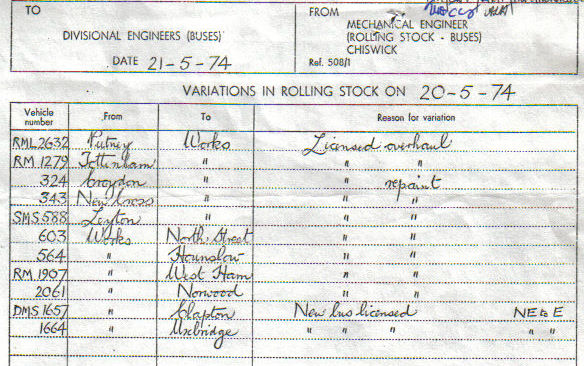 TO FROM
MECHANICAL ENGINEER
DIVISIONAL ENGINEERS (BUSES) (ROLLING STOCK - BUSES)
CHISWICK
DATE 21-5-74 Ref. 508/1
VARIATIONS IN ROLLING STOCK ON 20-5-74
Vehicle number From To Reason for variation
RML 2632 Putney Works Licensed overhaul
RM 1279 Tottenham " " "
324 Croydon " " repaint
343 New Cross " " "
SMS 588 Leyton " " "
603 Works North Street " "
564 " Hounslow " "
RM 1907 " West Ham " "
2061 " Norwood " "
DMS 1657 " Clapton New bus licensed NE to E
1664 " Uxbridge " " " " "